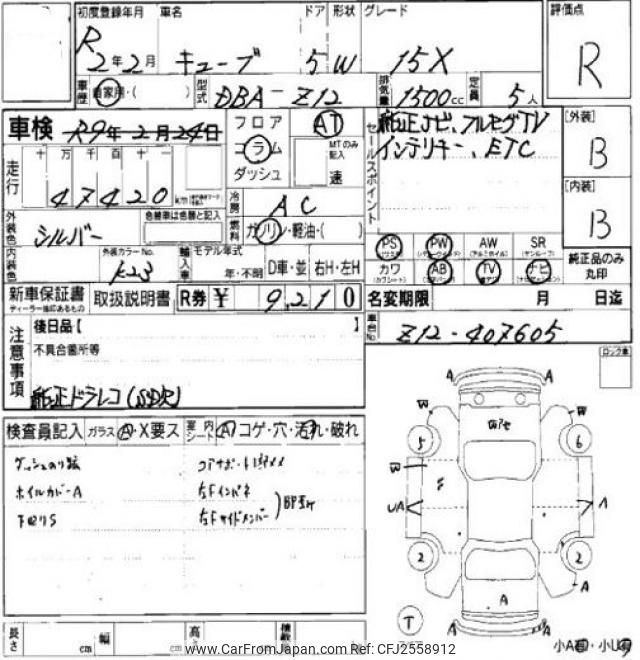 初度登録年月 車名 ドア 形状 グレード 評価点
R 2年2月 キューブ 5 W 15X R
車歴 自家用・( ) 型式 DBA-Z12 排気量 1500cc 定員 5人
車検 R9年2月24日 フロア AT セールスポイント 純正ナビ、フルセグTV [外装]
コラム MTのみ記入 インテリキー、ETC B
走行 十 万 千 百 十 一 ダッシュ 速
47420 km 冷房 AC [内装]
外装色 シルバー 色替車は色替と記入 燃料 ガソリン・軽油・( ) B
PS PW AW SR 純正品のみ丸印
内装色 外装カラーNo. K23 輸入車 モデル年式 年・不明 D車・並 右H・左H カワ AB TV ナビ
新車保証書 取扱説明書 R券 ¥ 9,210 名変期限 月 日迄
ディーラー印のあるもの
注意事項 後日品【 】 車台No Z12-407605
不具合箇所等 ロック車
純正ドラレコ
検査員記入 ガラス A・X要ス 室内シート A コゲ・穴・汚れ・破れ
ホイルカバーA
下回りS
A A
W W
5 6
W
UA A
2 2
A
A
T
A A
長さ cm 幅 cm 高さ cm 積載
www.CarFromJapan.com Ref: CFJ2558912
小A
小U